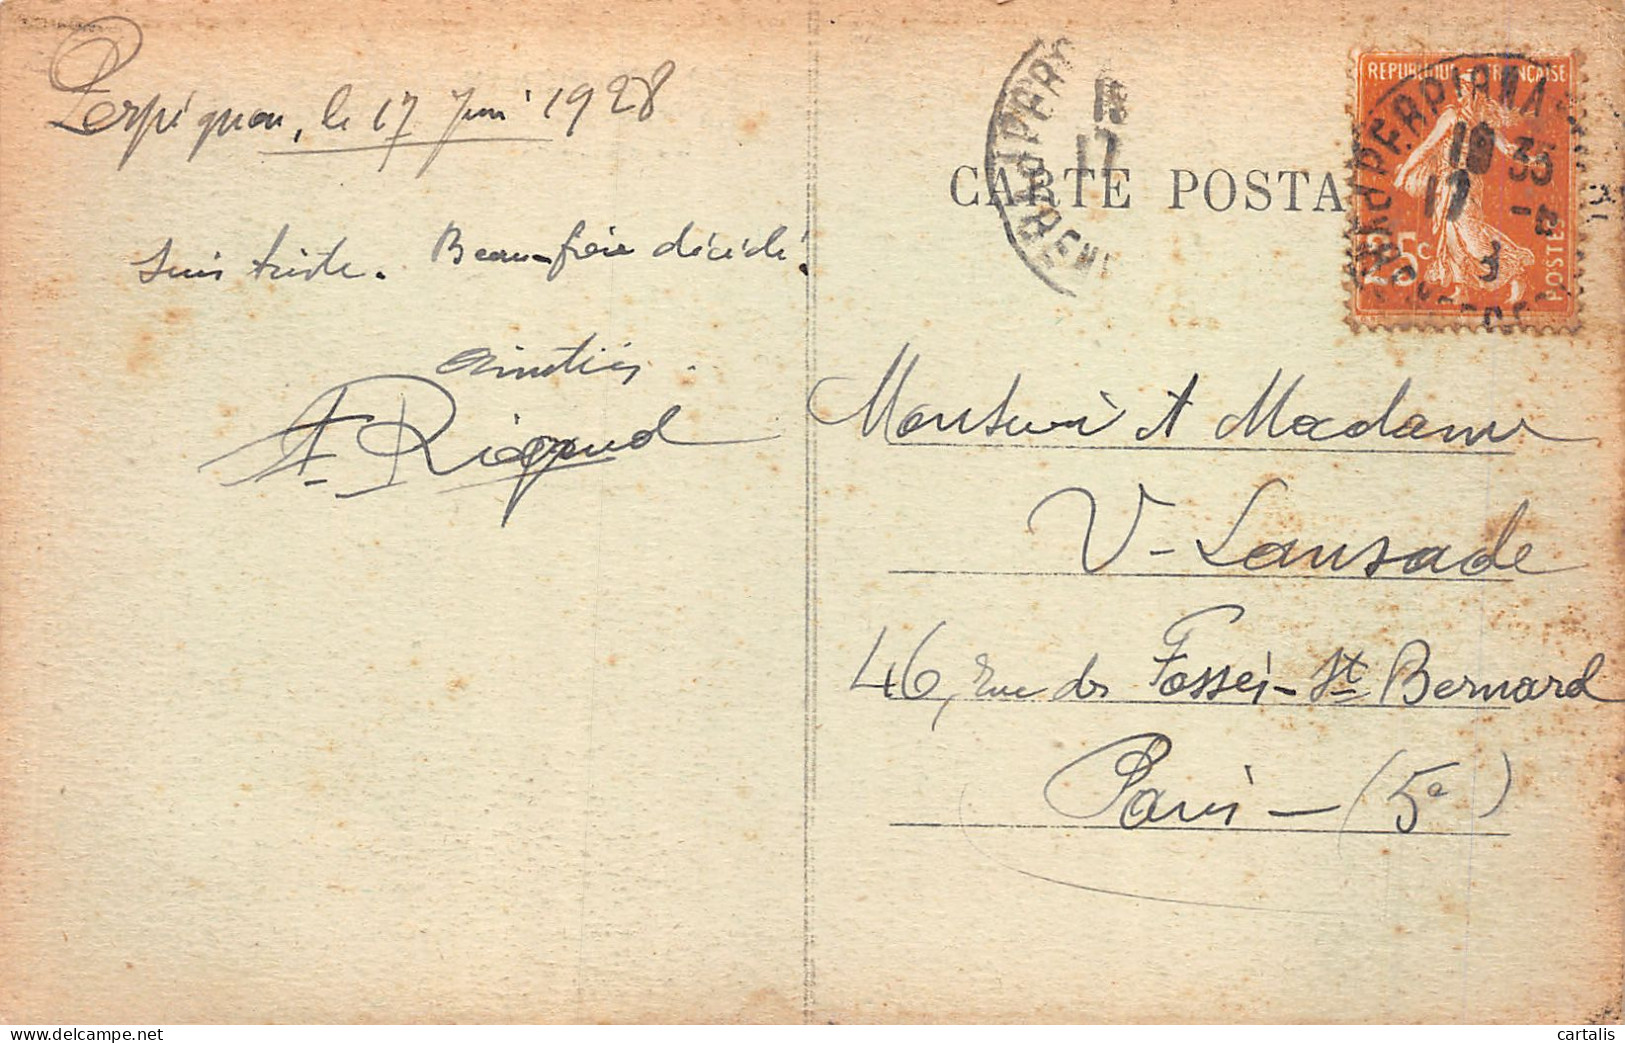 Perpignan, le 17 Juin 1928
Suis triste. Beau-frère décédé.
Amitiés.
A. Rigaud
CARTE POSTA
REPUBLIQUE FRANÇAISE
25c
POSTES
PERPIGNAN
18 35
17 - 6
Monsieur et Madame
V. Lansade
46, rue des Fossés-St Bernard
Paris - (5e)
cartalis